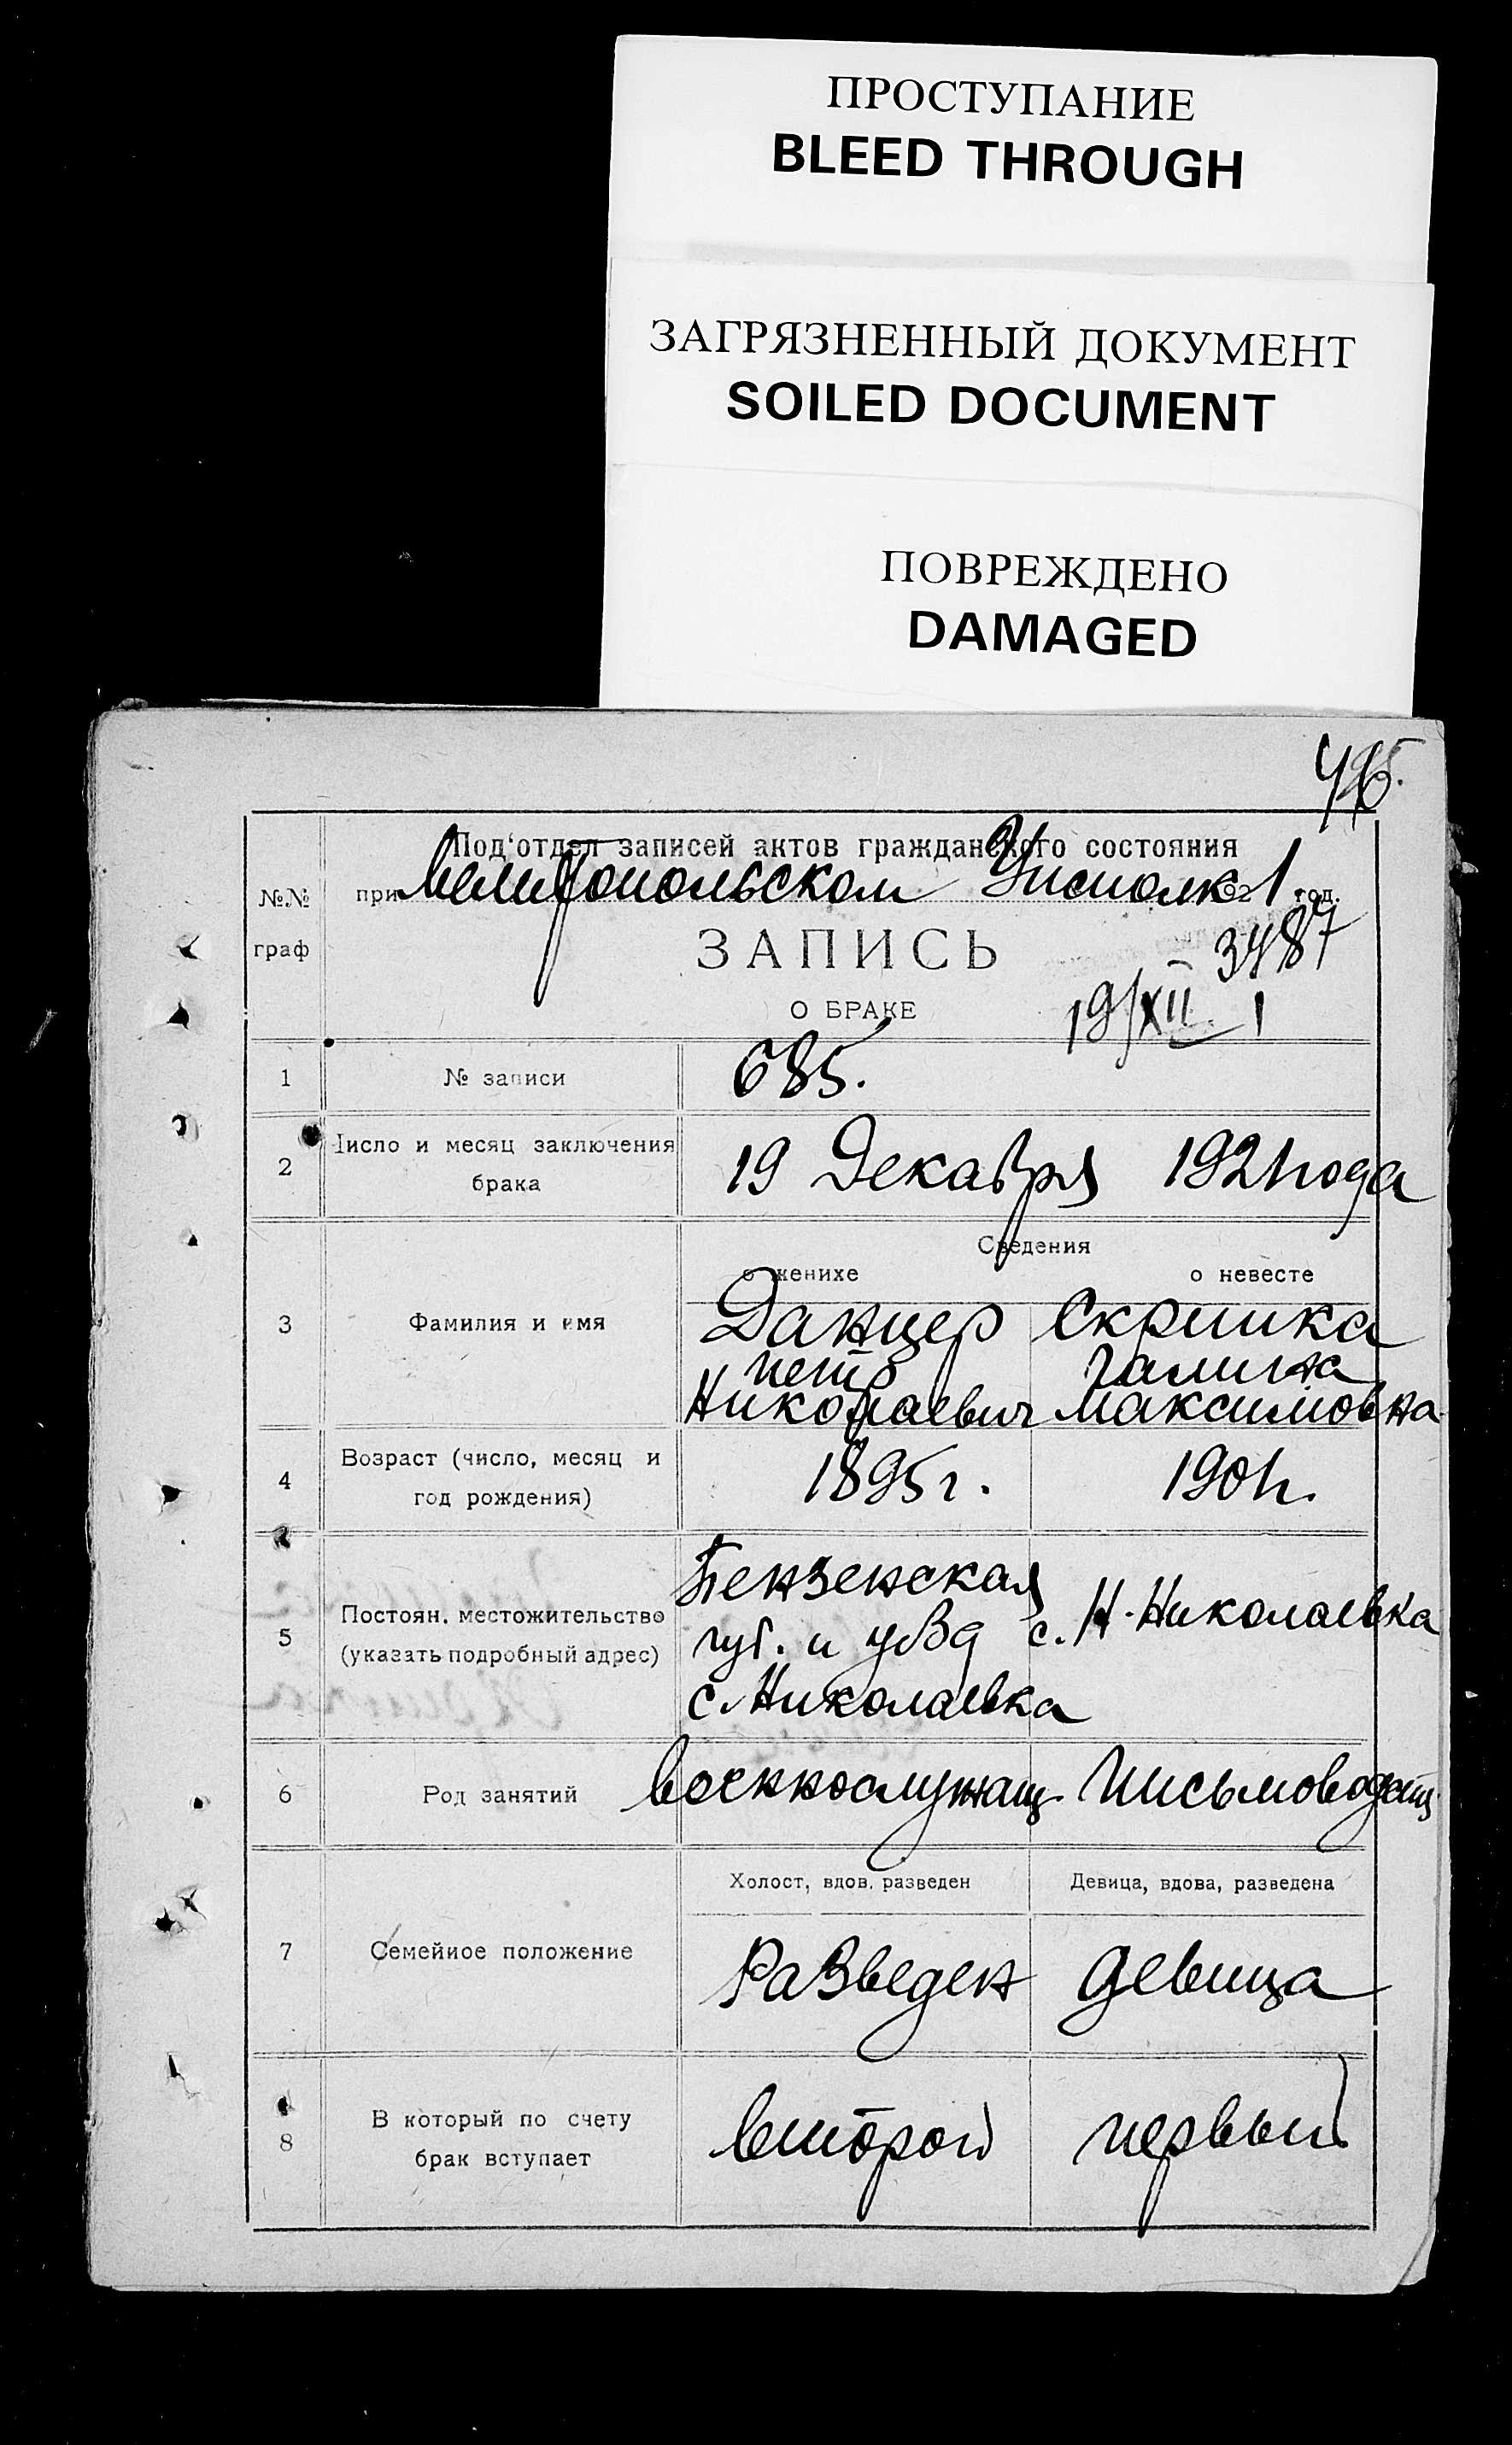 ПРОСТУПАНИЕ
BLEED THROUGH
ЗАГРЯЗНЕННЫЙ ДОКУМЕНТ
SOILED DOCUMENT
ПОВРЕЖДЕНО
DAMAGED
Под'отдел записей актов гражданского состояния
№№ граф
при Мелитопольском Уисполк 1 год.
ЗАПИСЬ
3487
О БРАКЕ
19/XII 1
1 № записи 685.
2 Число и месяц заключения брака 19 Декабря 1921 года
Сведения
о женихе о невесте
3 Фамилия и имя Данцер Скрипка
Петр Галина
Николаевич Максимовна
4 Возраст (число, месяц и год рождения) 1895 г. 1901 г.
5 Постоян. местожительство (указать подробный адрес)
Пензенская
губ. и с. Н-Николаевка
с. Николаевка
6 Род занятий военнослужащ. Письмоводит.
Холост, вдов, разведен Девица, вдова, разведена
7 Семейное положение Разведен девица
8 В который по счету брак вступает второй первый